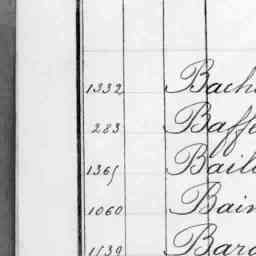 1332 Bach
283 Baff
1365 Bail
1060 Bain
1539 Bar